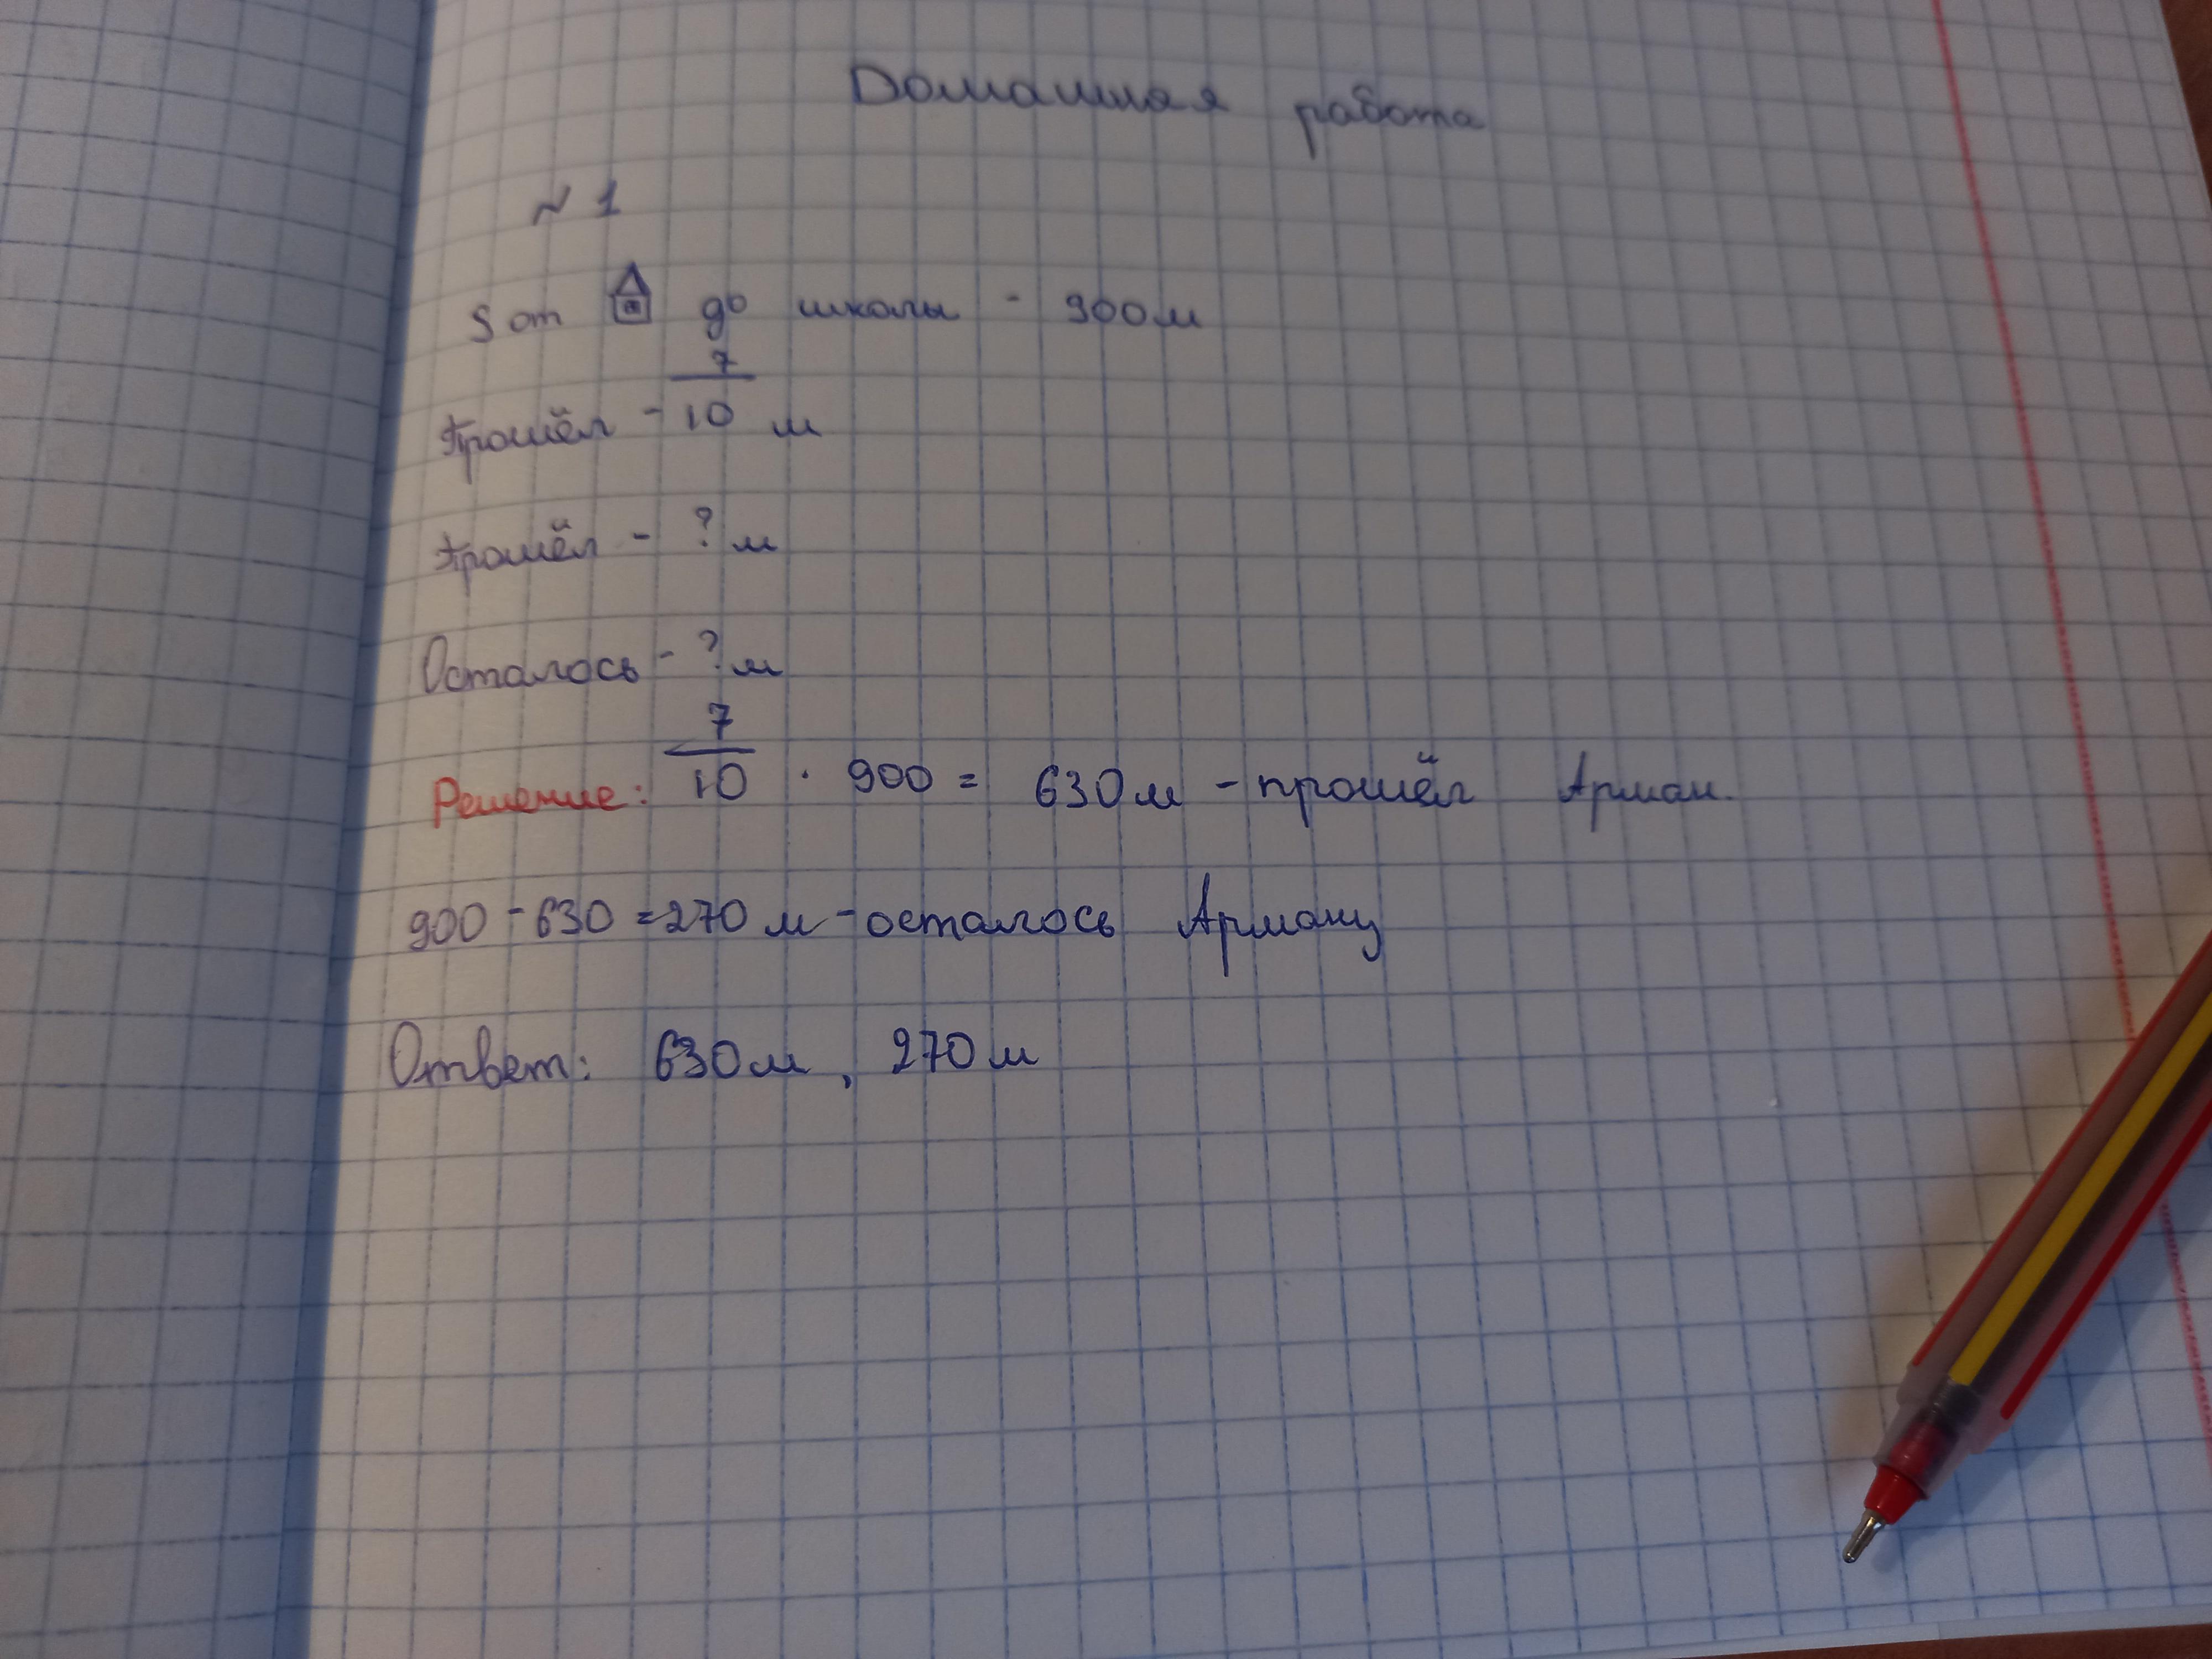 Домашняя работа
№ 1
S от до школы - 900м
Прошёл - 7/10 м
Прошёл - ? м
Осталось - ? м
Решение: 7/10 · 900 = 630м - прошёл Арман.
900 - 630 = 270 м - осталось Арману
Ответ: 630м, 270м